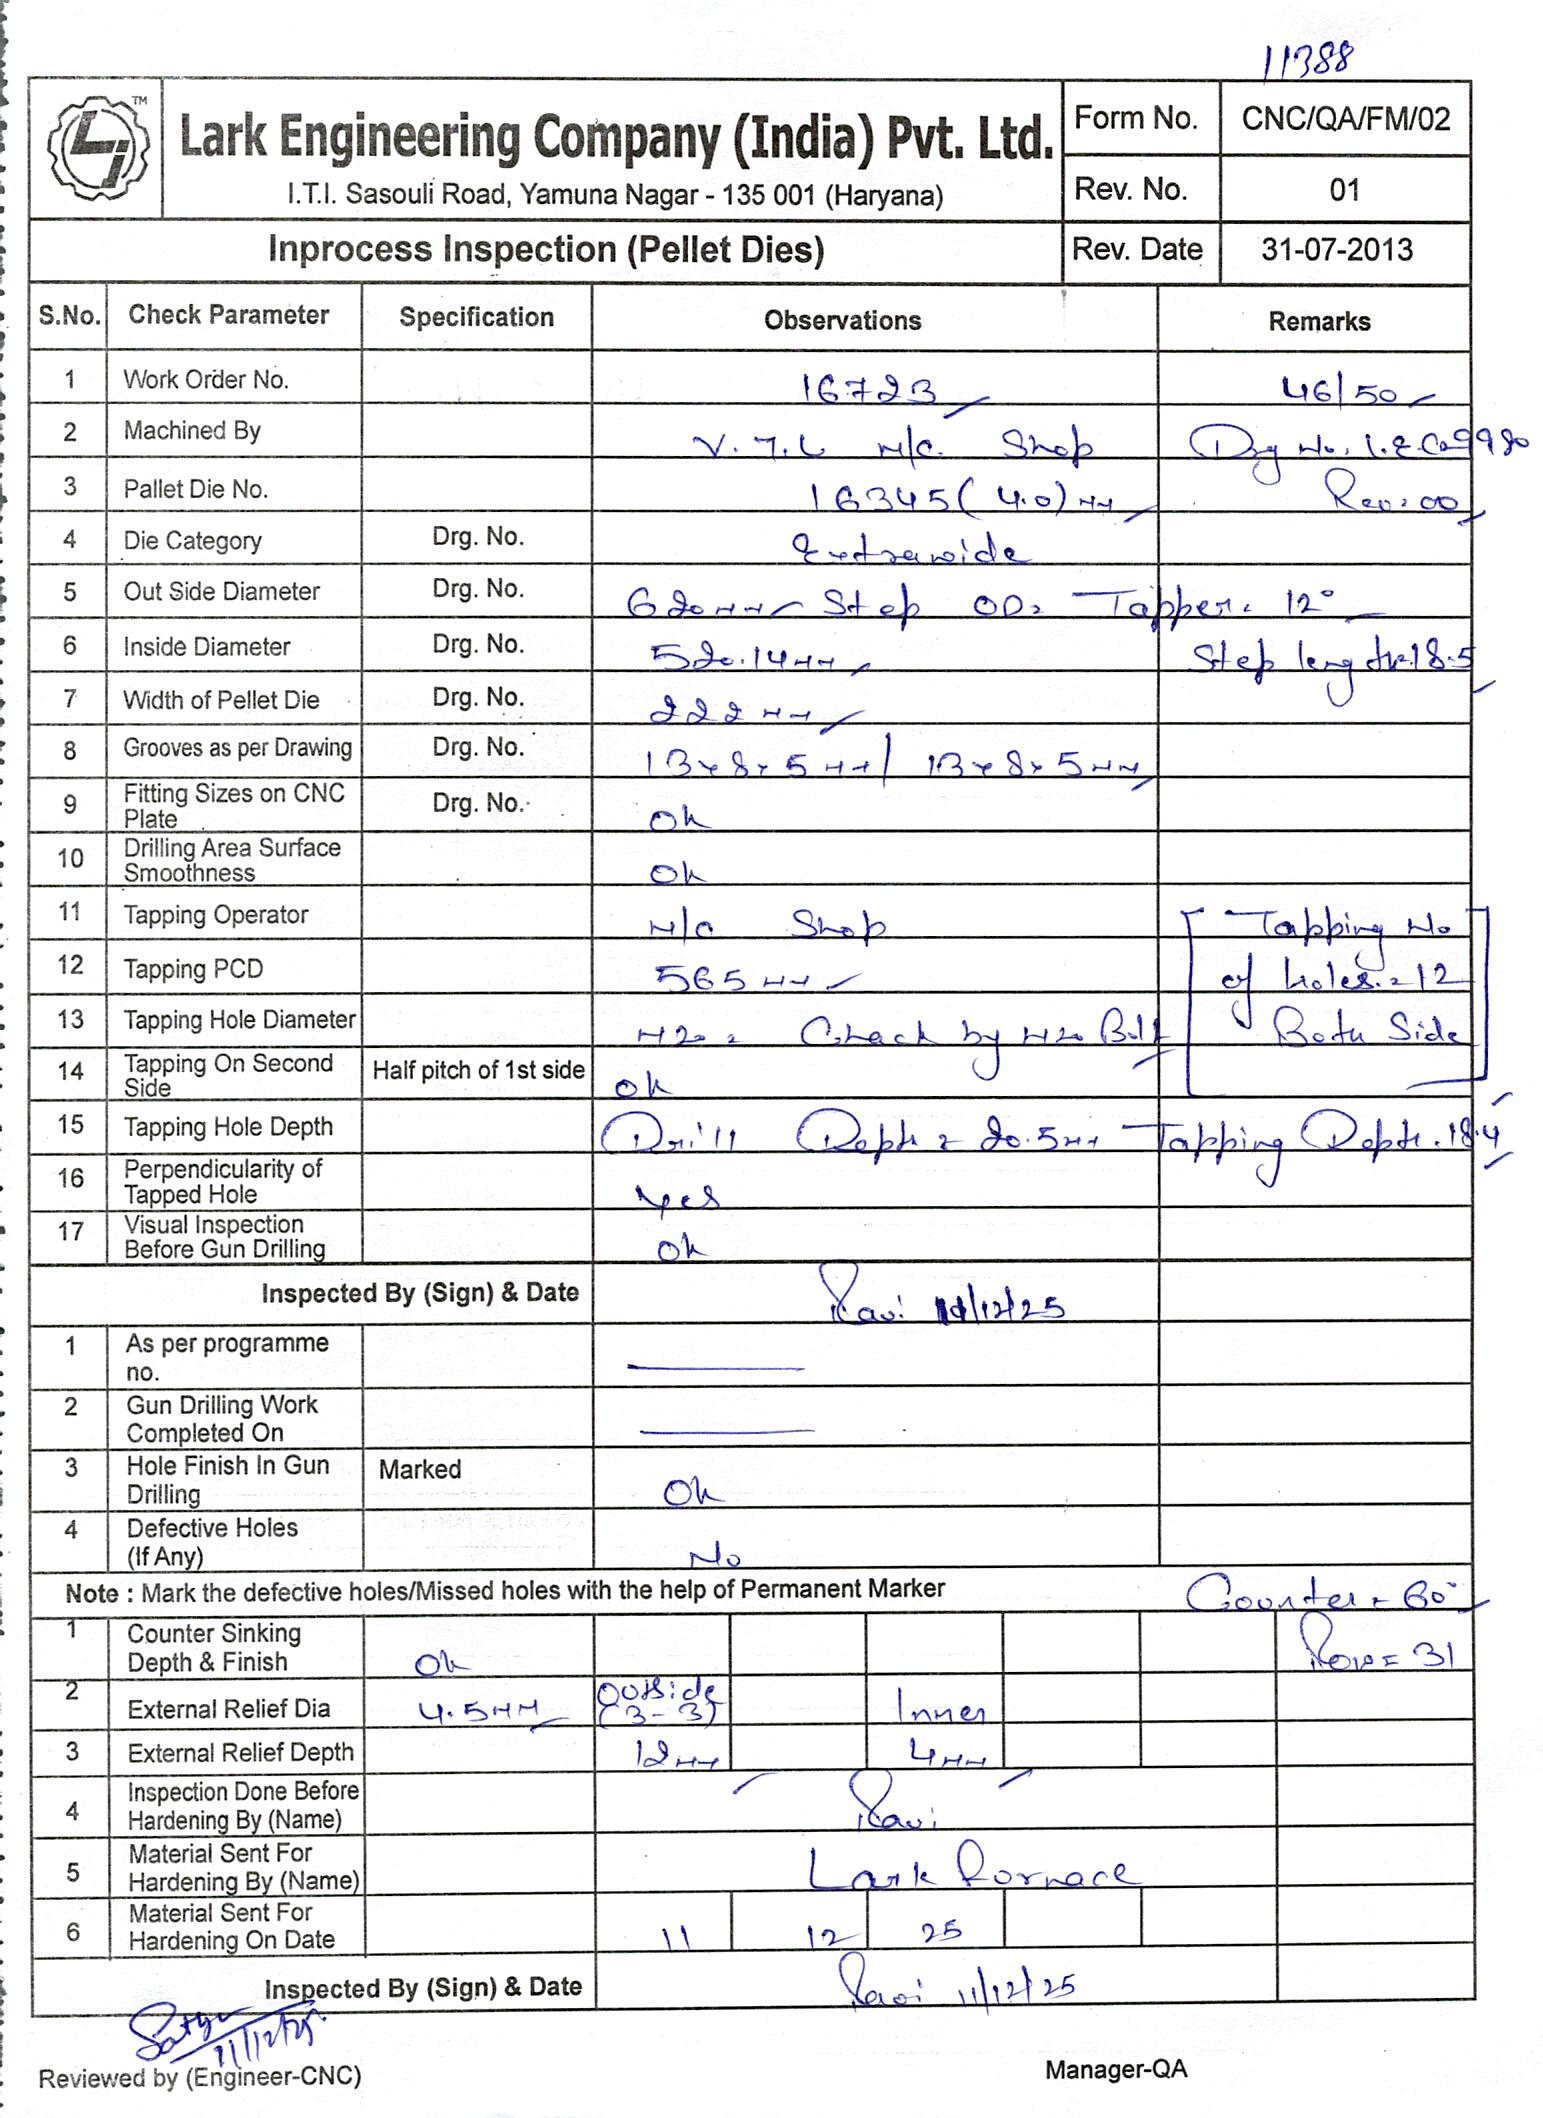 11388
TM
Lark Engineering Company (India) Pvt. Ltd.
I.T.I. Sasouli Road, Yamuna Nagar - 135 001 (Haryana)
Form No. CNC/QA/FM/02
Rev. No. 01
Inprocess Inspection (Pellet Dies) Rev. Date 31-07-2013
S.No. Check Parameter Specification Observations Remarks
1 Work Order No. 16723 46/50
2 Machined By V.T.L M/C. Shop Drg No. L.E.C=9980
3 Pallet Die No. 16345 (4.0) MM Rev: 00
4 Die Category Drg. No. Extrawide
5 Out Side Diameter Drg. No. 620MM Step OD= Tapper= 12°
6 Inside Diameter Drg. No. 520.14MM Step length=18.5
7 Width of Pellet Die Drg. No. 222MM
8 Grooves as per Drawing Drg. No. 13x8x5MM/ 13x8x5MM
9 Fitting Sizes on CNC Plate Drg. No. Ok
10 Drilling Area Surface Smoothness Ok
11 Tapping Operator M/C Shop Tapping No
12 Tapping PCD 565MM of holes=12
13 Tapping Hole Diameter M20= Chack by M20 Bolt Both Side
14 Tapping On Second Side Half pitch of 1st side Ok
15 Tapping Hole Depth Drill Depth= 20.5MM Tapping Depth=18.4
16 Perpendicularity of Tapped Hole Yes
17 Visual Inspection Before Gun Drilling Ok
Inspected By (Sign) & Date Ravi /12/25
1 As per programme no.
2 Gun Drilling Work Completed On
3 Hole Finish In Gun Drilling Marked Ok
4 Defective Holes (If Any) No
Note : Mark the defective holes/Missed holes with the help of Permanent Marker Counter = 60°
1 Counter Sinking Depth & Finish Ok Row= 31
2 External Relief Dia 4.5MM Outside (3-3) Inner
3 External Relief Depth 12MM 4MM
4 Inspection Done Before Hardening By (Name) Ravi
5 Material Sent For Hardening By (Name) Lark Fornace
6 Material Sent For Hardening On Date 11 12 25
Inspected By (Sign) & Date Ravi 11/12/25
11/12/25
Reviewed by (Engineer-CNC) Manager-QA